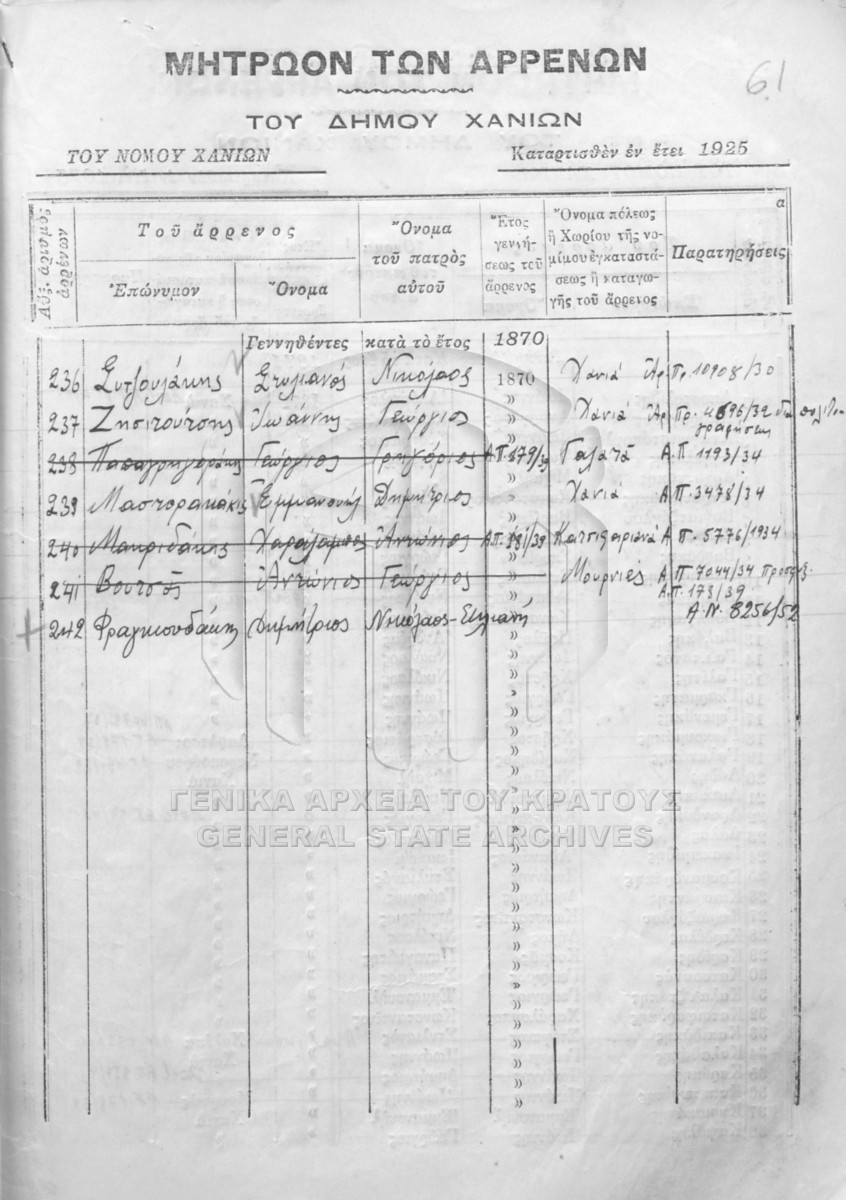 6.1
ΜΗΤΡΩΟΝ ΤΩΝ ΑΡΡΕΝΩΝ
ΤΟΥ ΔΗΜΟΥ ΧΑΝΙΩΝ
ΤΟΥ ΝΟΜΟΥ ΧΑΝΙΩΝ Καταρτισθὲν ἐν ἔτει 1925
α
Αὔξ. ἀριθμὸς ἀρρένων
Τοῦ ἄρρενος
Ἐπώνυμον
Ὄνομα
Ὄνομα
τοῦ πατρὸς
αὐτοῦ
Ἔτος
γεννή-
σεως τοῦ
ἄρρενος
Ὄνομα πόλεως
ἢ Χωρίου τῆς νο-
μίμου ἐγκαταστά-
σεως ἢ καταγω-
γῆς τοῦ ἄρρενος
Παρατηρήσεις
Γεννηθέντες κατὰ τὸ ἔτος 1870
236 Στυλιανός Νικόλαος 1870 Χανιά Ἀρ. Πρ. 10908/30
237 Ζησιτούτσης Ἰωάννης Γεώργιος » Χανιά Ἀρ. Πρ. 4696/32
238 Παπαγρηγοράκης Γεώργιος Γρηγόριος Α.Π. 179/39 Γαλατᾶ Α.Π. 1193/34
239 Μαστορακάκις Ἐμμανουήλ Δημήτριος » Χανιά Α.Π. 3478/34
240 Μακριδάκης Χαράλαμπος Ἀντώνιος Α.Π. 181/39 Κατσιφαριανά Α.Π. 5776/1934
241 Βουτσᾶς Ἀντώνιος Γεώργιος » Μουρνιές Α.Π. 7044/34
Α.Π. 173/39
242 Φραγκιουδάκης Δημήτριος Νικόλαος-Στυλιανή Α.Ν. 8256/52
ΓΕΝΙΚΑ ΑΡΧΕΙΑ ΤΟΥ ΚΡΑΤΟΥΣ
GENERAL STATE ARCHIVES